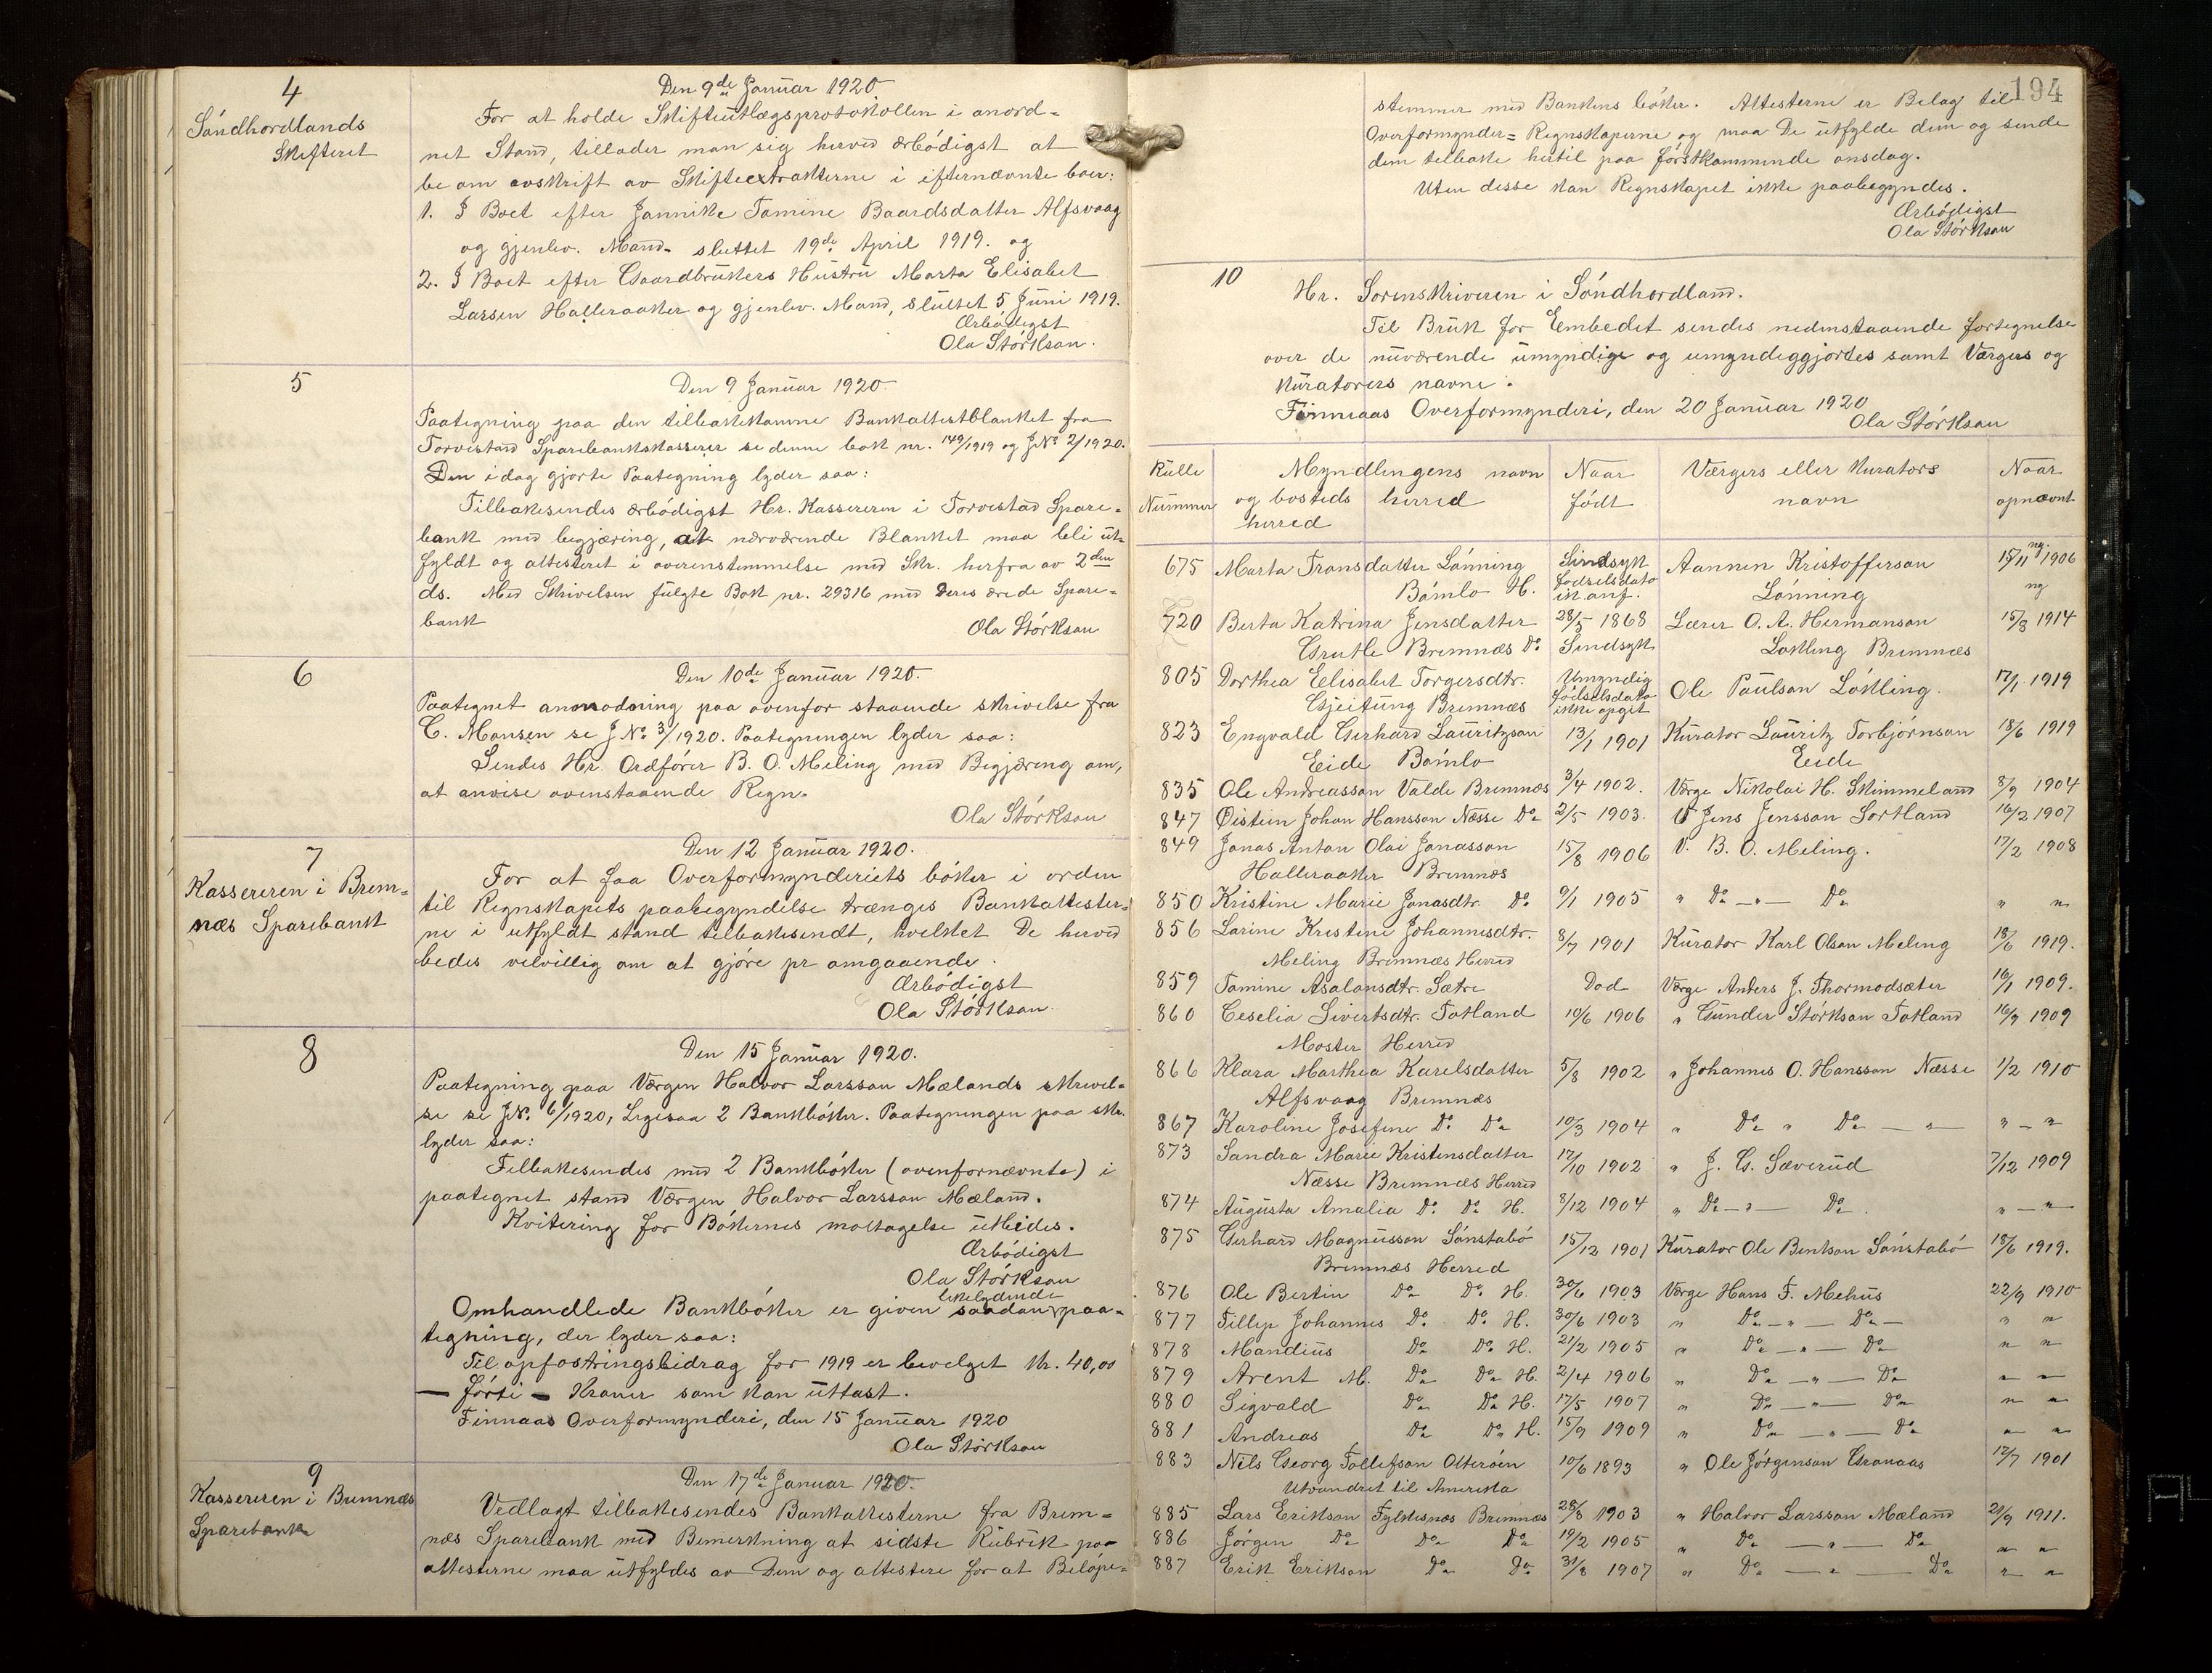 4
Søndhordlands
Skifteret
Den 9de Januar 1920
For at holde Skifteutlægsprotokollen i anord=
net Stand, tillader man sig herved ærbødigst at
be om avskrift av Skifteextrakterne i efternævnte boer:
1. I Boet efter Jannike Tamine Baardsdatter Alfsvaag
og gjenlev. Mand. sluttet 19de April 1919. og
2. I Boet efter Gaardbrukers Hustru Marta Elisabet
Larsen Halleraaker og gjenlev. Mand, sluttet 5 Juni 1919.
Ærbødigst
Ola Størkson.
5
Den 9 Januar 1920
Paategning paa den tilbakekomne Bankattestblanket fra
Torvestad Sparebankskasserer se denne bok nr. 149/1919 og JNo 2/1920.
Den idag gjorte Paategning lyder saa:
Tilbakesendes ærbødigst Hr. Kassereren i Torvestad Spare=
bank med begjæring, at nærværende Blanket maa bli ut=
fyldt og attesteret i overenstemmelse med Skr. herfra av 2den
ds. Med Skrivelsen fulgte Bok nr. 29316 med Deres ærede Spare=
bank
Ola Størkson
6
Den 10de Januar 1920.
Paategnet anmodning paa ovenfor staaende skrivelse fra
C. Monsen se JNo 3/1920. Paategningen lyder saa:
Sendes Hr. Ordfører B. O. Meling med Begjæring om,
at anvise ovenstaaende Regn.
Ola Størkson
7
Kassereren i Brem=
næs Sparebank
Den 12 Januar 1920.
For at faa Overformynderiets bøker i orden
til Regnskapets paabegyndelse trænges Bankattester=
ne i utfyldt stand tilbakesendt, hvilket De herved
bedes velvillig om at gjøre pr omgaaende.
Ærbødigst
Ola Størkson.
8
Den 15 Januar 1920.
Paategning paa Værgen Halvor Larsson Mælands skrivel=
se se JNo. 6/1920, Ligesaa 2 Bankbøker. Paategningen paa skr.
lyder saa:
Tilbakesendes med 2 Bankbøker (ovenfornævnte) i
paategnet stand Værgen Halvor Larsson Mæland.
Kvitering for Bøkernes mottagelse utbedes.
Ærbødigst
Ola Størkson
likelydende
Omhandlede Bankbøker er given saadan paa=
tegning, der lyder saa:
Til opfostringsbidrag for 1919 er bevilget Kr. 40,00
— førti — Kroner som kan uttast.
Finnaas Overformynderi, den 15 Januar 1920
Ola Størkson
9
Kassereren i Bremnæs
Sparebank
Den 17de Januar 1920.
Vedlagt tilbakesendes Bankattesterne fra Brem=
næs Sparebank med Bemerkning at sidste Rubrik paa
attesterne maa utfyldes av Dem og attestere for at Beløpe=
194
stemmer med Bankens bøker. Attesterne er Belag til
Overformynder= Regnskaperne og maa De utfylde dem og sende
dem tilbake hertil paa førstkommende onsdag.
Uten desse kan Regnskapet ikke paabegyndes.
Ærbødigst
Ola Størkson
10
Hr. Sorenskriveren i Søndhordland.
Til Bruk for Embedet sendes nedenstaaende fortegnelse
over de nuværende umyndige og umyndeggjordes samt Værgers og
Kuratorers navne.
Finnaas Overformynderi, den 20 Januar 1920
Ola Størkson
Rulle Nummer | Myndlingens navn og bosteds herred herred | Naar født | Værgers eller Kurators navn | Naar opnævnt
675 Marta Transdatter Lønning Bømlo H. Sindsyk fødselsdato ik. anf. Aannen Kristofferson Lønning 15/11 1906 ny ny
720 Berta Katrina Jensdatter Grutle Bremnæs Do 28/5 1868 Sindsyk Lærer O. A. Hermanson Løkling Bremnæs 15/3 1914
805 Dorthea Elisabet Torgersdtr. Gjeitung Bremnæs Umyndig fødselsdato ikke opgit Ole Paulson Løkling. 17/1 1919
823 Engvald Gerhard Lauritzson Eide Bømlo 13/1 1901 Kurator Lauritz Torbjørnson Eide 18/6 1919
835 Ole Andreasson Valde Bremnæs 3/4 1902. Værge Nikolai H. Skimmeland 8/9 1904
847 Øistein Johan Hansson Næsse Do 2/5 1903. V Jens Jensson Sortland 16/2 1907
849 Jonas Anton Olai Jonasson Halleraaker Bremnæs 15/8 1906 V. B. O. Meling. 17/2 1908
850 Kristine Marie Jonasdtr. Do 9/1 1905 " Do —"— Do " "
856 Larine Kristine Johannesdtr. Meling Bremnæs Herred 8/7 1901 Kurator Karl Olson Meling 18/6 1919.
859 Tamine Asalonsdtr. Sætre Død Værge Anders J. Thormodsæter 16/1 1909.
860 Ceselia Sivertsdtr. Totland Moster Herred 10/6 1906 " Gunder Størkson Totland 16/9 1909
866 Klara Marthea Karelsdatter Alfsvaag Bremnæs 5/8 1902 " Johannes O. Hansson Næsse 1/2 1910
867 Karoline Josefine Do Do 10/3 1904 " Do " Do — " — " — "
873 Sandra Marie Kristensdatter Næsse Bremnæs Herred 12/10 1902 " J. G. Sæverud 7/12 1909
874 Augusta Amalia Do Do H. 8/12 1904 " Do —"— Do. " — "
875 Gerhard Magnusson Sønstabø Bremnæs Herred 15/12 1901 Kurator Ole Bentson Sønstabø 18/6 1919.
876 Ole Bertin Do Do H. 30/6 1903 Værge Hans F. Mehus 22/9 1910
877 Tillep Johannes Do Do H. 30/6 1903 " Do —"— Do — " "
878 Mandius Do Do H. 21/2 1905 " Do —"— Do " "
879 Arent M. Do Do H. 2/4 1906 " Do —"— Do " "
880 Sigvald Do Do H. 17/5 1907 " Do —"— Do " "
881 Andreas Do Do H. 15/9 1909 " Do —"— Do " "
883 Nils Georg Tollefson Otterøen 10/6 1893 " Ole Jørgenson Gronaas 12/7 1901
Utvandret til Amerika
885 Lars Erikson Fylkesnæs Bremnæs 28/8 1903 " Halvor Larsson Mæland 21/9 1911.
886 Jørgen Do Do Do 19/2 1905 " Do —"— Do " "
887 Erik Erikson Do Do 31/8 1907 " Do —"— Do " "